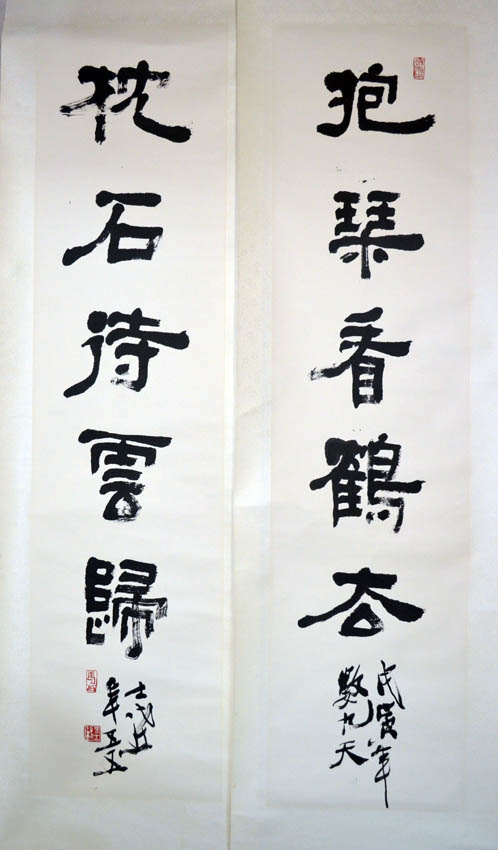 抱琴看鶴去
戊寅年
數九天
枕石待雲歸